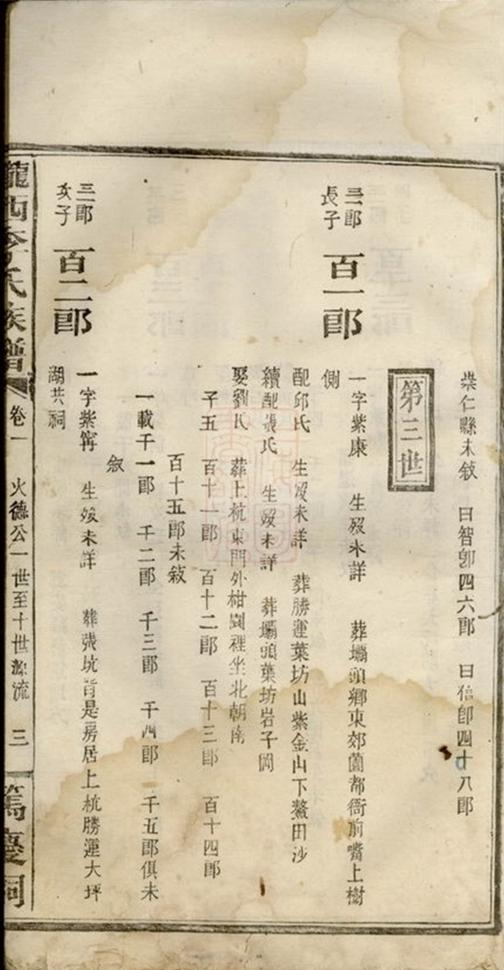 崇仁縣未敘 曰智卽四六郎 曰信卽四十八郎
第三世
三郎長子 百一郎
一字紫康 生歿未詳 葬壩頭鄉東郊蘭都衙前嘴上樹
側
配邱氏 生歿未詳 葬勝運葉坊山紫金山下鰲田沙
續配張氏 生歿未詳 葬壩頭葉坊岩子岡
娶劉氏 葬上杭東門外柑園裡坐北朝南
子五 百十一郎 百十二郎 百十三郎 百十四郎
百十五郎未敘
一載千一郎 千二郎 千三郎 千四郎 千五郎俱未
敘
三郎次子 百二郎
一字紫甯 生歿未詳 葬張坑背是房居上杭勝運大坪
湖共祠
隴西李氏族譜 卷一 火德公一世至十世源流 三 篤慶祠